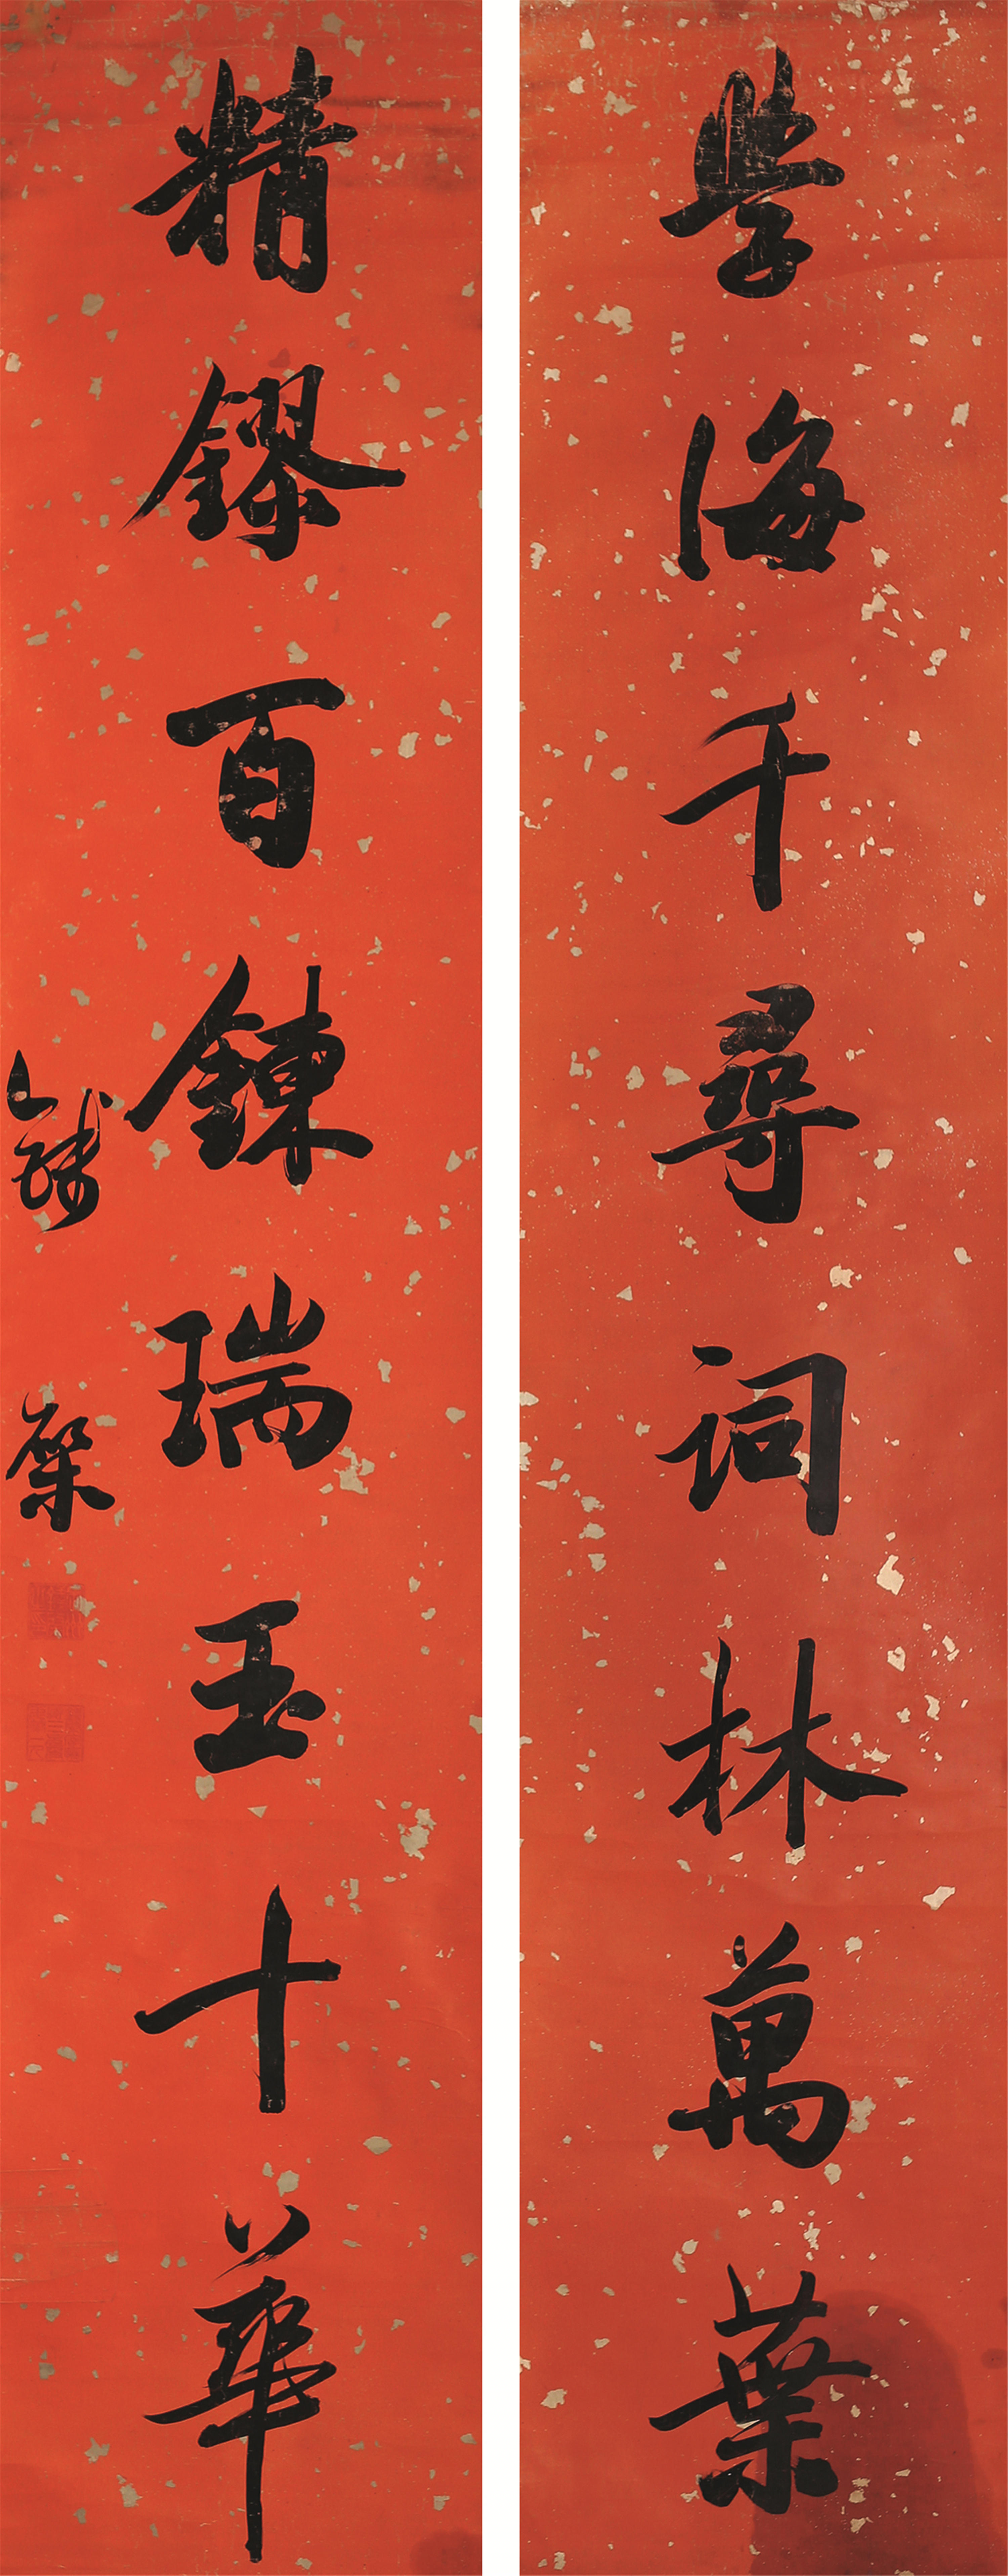 學海千尋詞林萬葉
精鏐百鍊瑞玉十華
錢棨